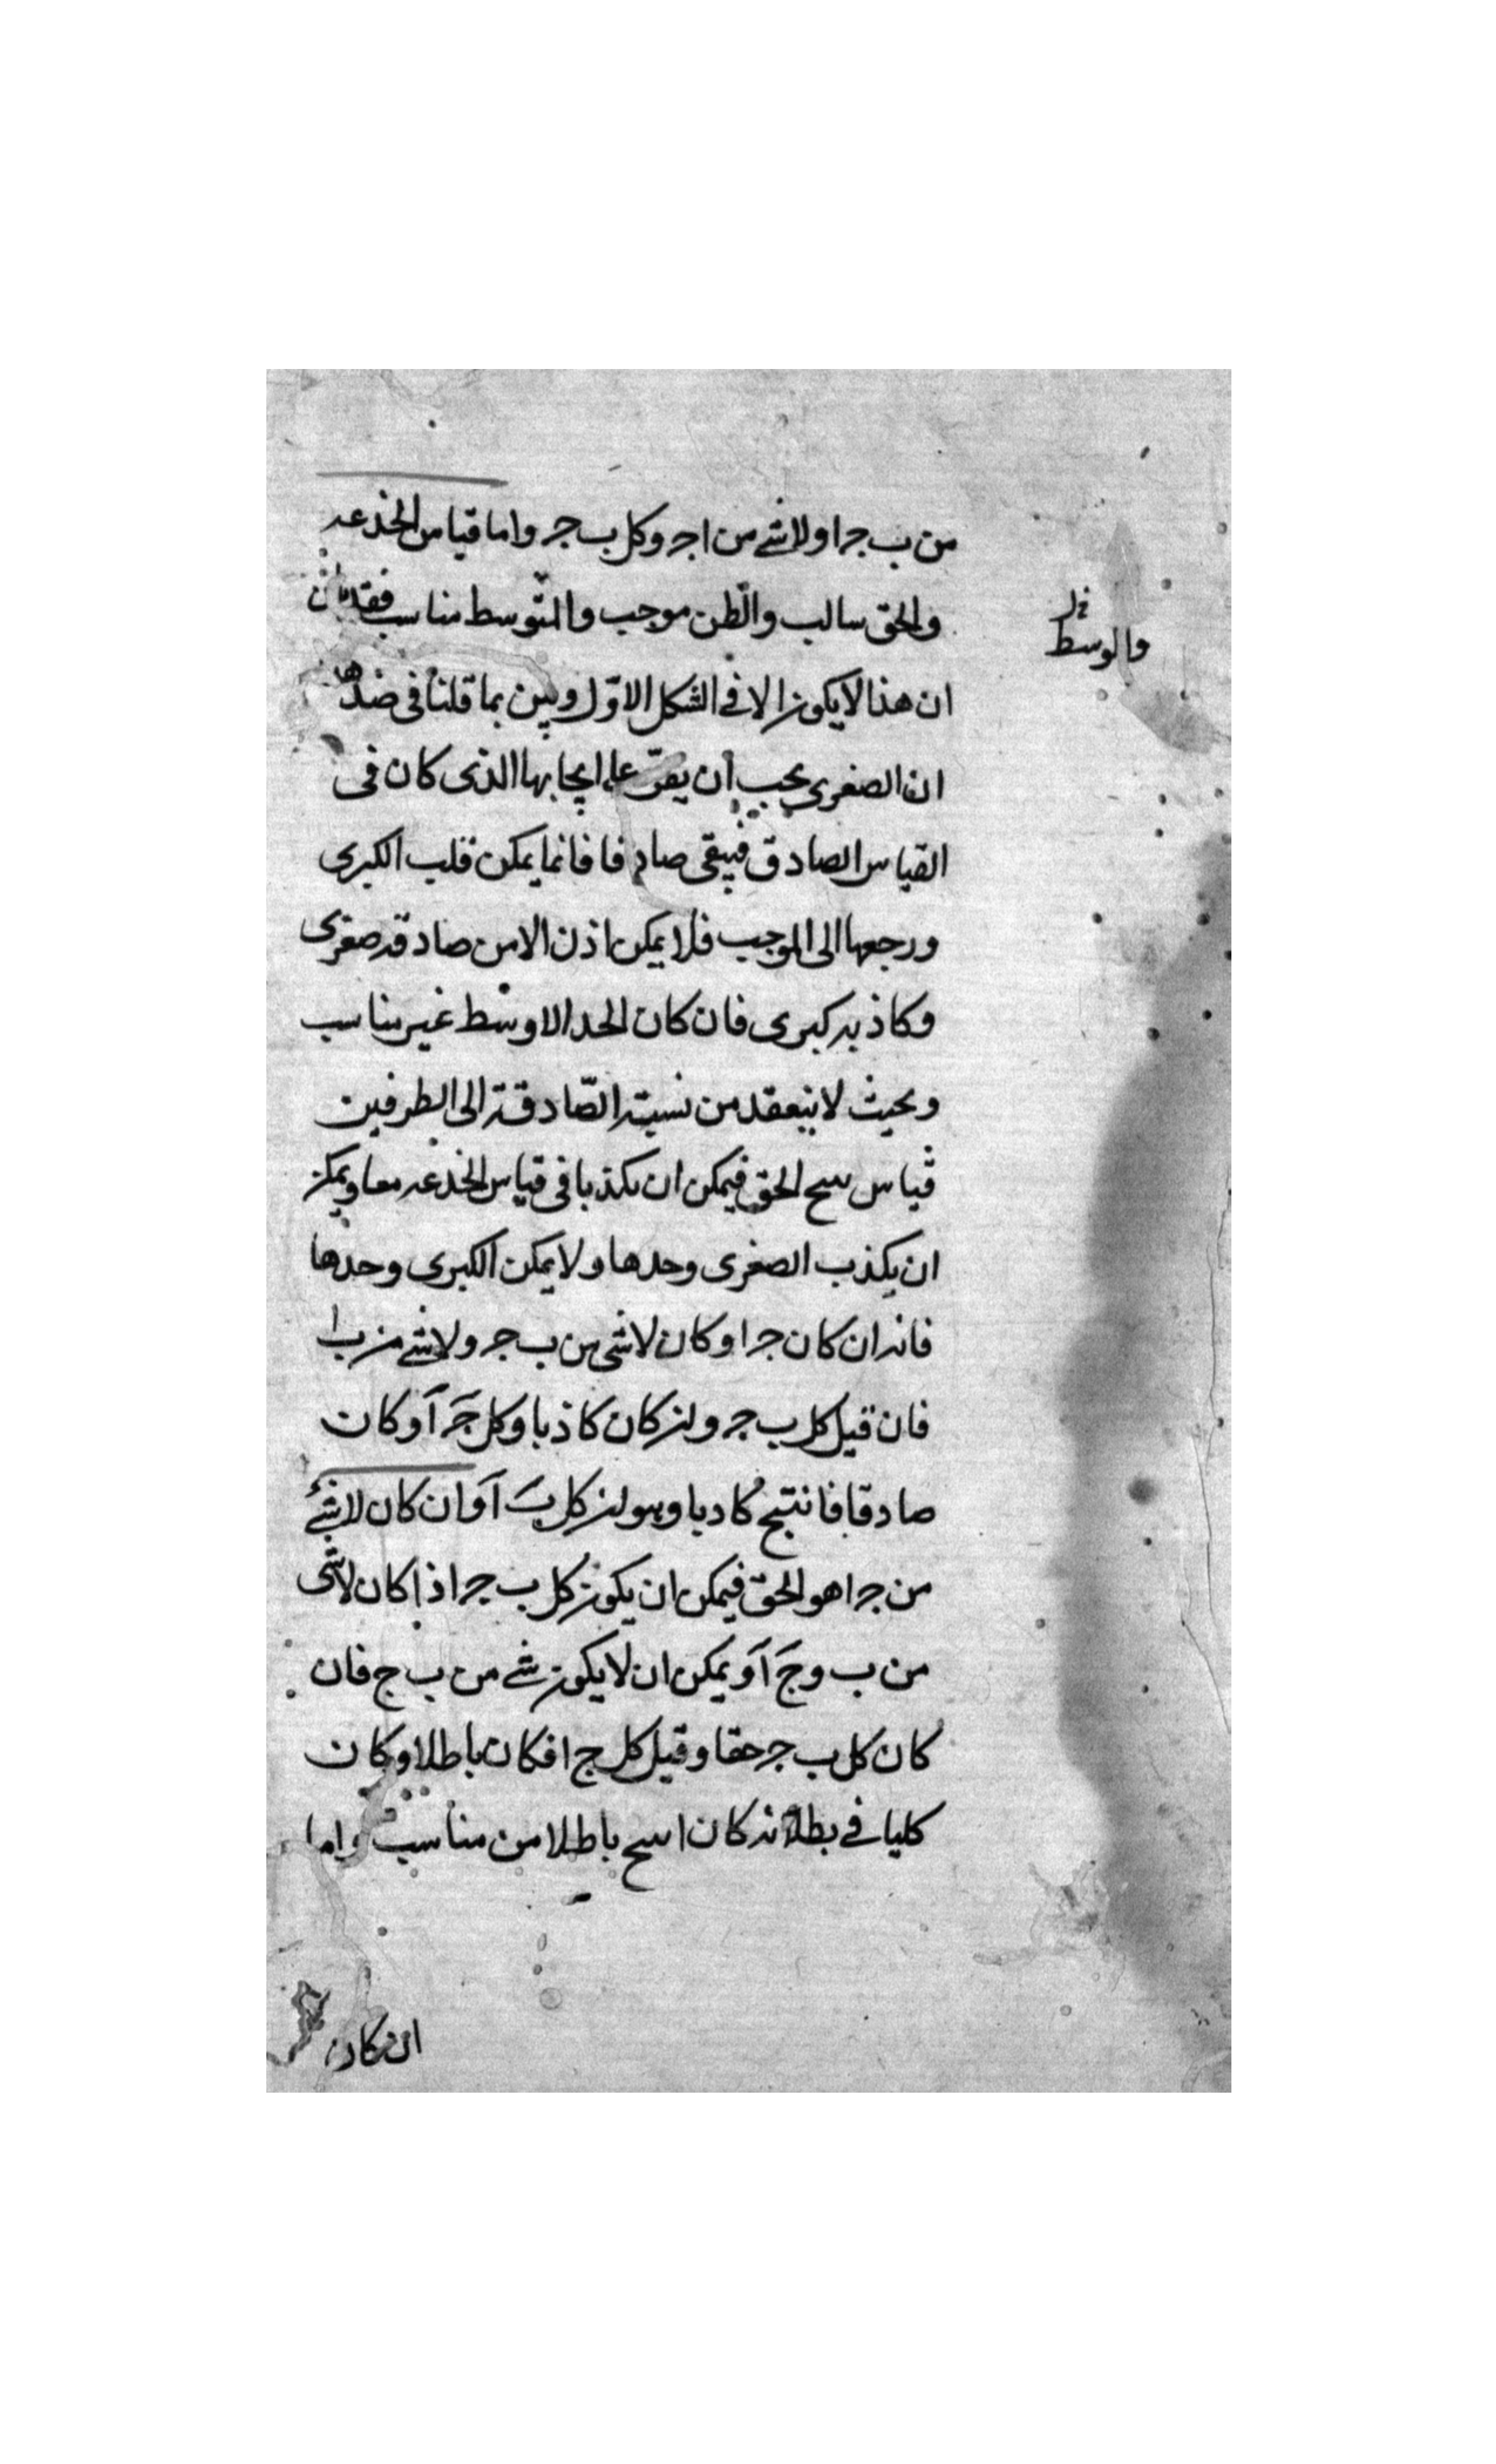 من ب جـ ا ولا شئ من ا جـ وكل ب جـ واما قياس الخدعه
والحق سالب والظن موجب والمتوسط مناسب فقد بان
والوسط
ان هذا لا يكون الا في الشكل الاوّل وبين بما قلنا في ضدها
ان الصغرى يجب ان يقرّ على ايجابها الذى كان فى
القياس الصادق فيبقى صادقا فانما يمكن قلب الكبرى
ورجعها الى الموجب فلا يمكن اذن الا من صادقه صغرى
وكاذبه كبرى فان كان الحد الاوسط غير مناسب
وبحيث لا ينعقد من نسبته الصّادقة الى الطرفين
قياس ينتج الحق فيمكن ان يكذبا فى قياس الخدعه معا ويمكن
ان يكذب الصغرى وحدها ولا يمكن الكبرى وحدها
فانه ان كان جـ ا وكان لا شى من ب جـ ولا شئ من ب ا
فان قيل كل ب جـ وان كان كاذبا وكل جـ آ وكان
صادقا فانتج كاذبا وهو ان كل ب آ وان كان لا شئ
من جـ ا هو الحق فيمكن ان يكون كل ب جـ اذا كان لا شى
من ب وج آ ويمكن ان لا يكون شئ من ب ج فان
كان كل ب جـ حقا وقيل كل ج ا فكان باطلا وكان
كليا في بطلانه كان انتج باطلا من مناسب واما
ان كان